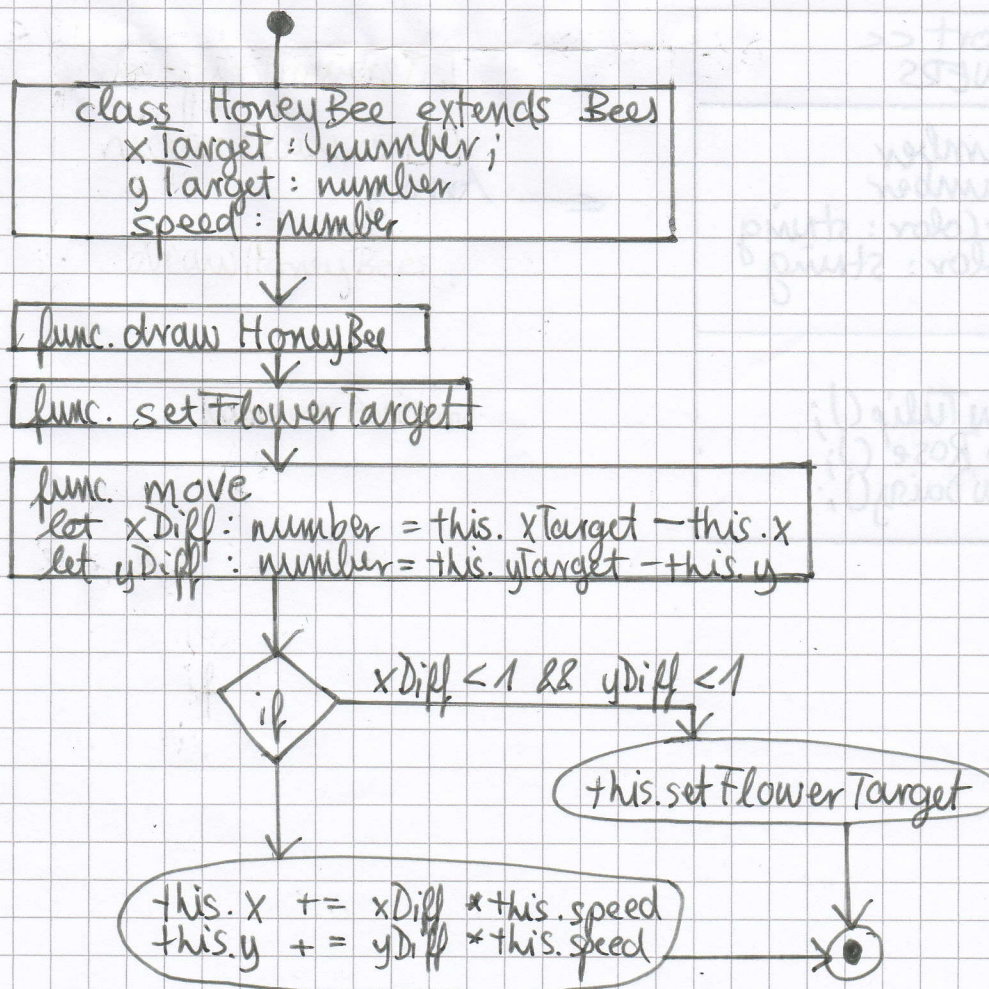 class HoneyBee extends Bees
xTarget : number;
yTarget : number
speed : number
func. draw HoneyBee
func. setFlowerTarget
func. move
let xDiff : number = this. xTarget - this. x
let yDiff : number = this. yTarget - this. y
if
xDiff < 1 && yDiff < 1
this.setFlowerTarget
this. x += xDiff * this. speed
this. y += yDiff * this. speed